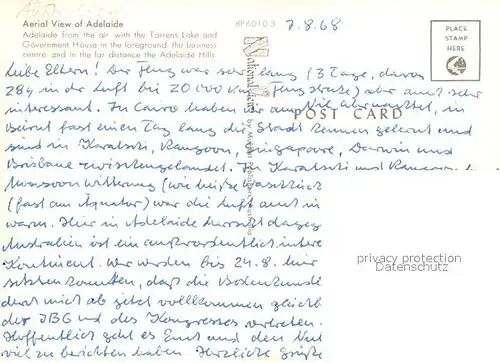 Aerial View of Adelaide
BP6010-3
7.8.68
Adelaide from the air, with the Torrens Lake and
Government House in the foreground, the business
centre, and in the far distance the Adelaide Hills.
PLACE
STAMP
HERE
POST CARD
Liebe Eltern! Der Flug war sehr lang (3 Tage, davon
28h in der Luft bis 20 000 km Flugstrecke) aber auch sehr
interessant. In Cairo haben wir am Nil übernachtet, in
Beirut fast einen Tag lang die Stadt kennen gelernt und
sind in Karatschi, Rangoon, Singapore, Darwin und
Brisbane zwischengelandet. In Karatschi und Rangoon
Monsoon Witterung (wie heiße Waschküch
(fast am Äquator) war die Luft auch
warm. Hier in Adelaide herrscht dageg
Australien ist ein außerordentlich inter
Kontinent. Wir werden bis 24.8. hier
daß die
mich ab jetzt vollkommen
des und des Kongresses vertreten.
Hoffentlich geht es Euch und den
viel zu berichten haben. Herzliche Grüße
privacy protection
Datenschutz